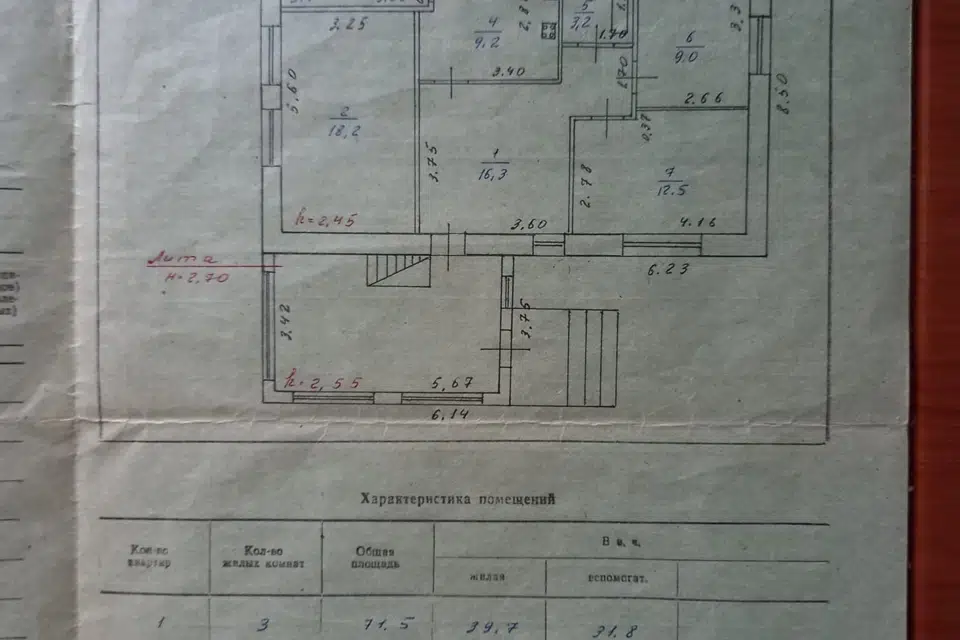 3.25
4
9,2
2,8
5
3,2
1.70
6
9.0
3,3
5.60
2
18,2
3.40
1,70
2.66
8.50
0,37
3.75
1
16,3
2.78
7
12.5
h=2,45
3.60
4.16
6.23
Лит а
H=2,70
3,42
3,75
h=2,55
5,67
6,14
Характеристика помещений
Кол-во
квартир
Кол-во
жилых комнат
Общая
площадь
В т. ч.
жилая
вспомогат.
1
3
71.5
39,7
31.8